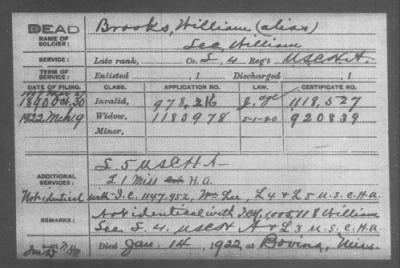 DEAD
NAME OF SOLDIER:
Brooks, William (alias)
Lee, William
SERVICE:
Late rank, Co. L, 4 Reg't USCHA
TERM OF SERVICE:
Enlisted , 1 Discharged , 1
DATE OF FILING. CLASS. APPLICATION NO. LAW. CERTIFICATE NO.
1890 Oct 30 Invalid, 978,216 1118,527
1922 Mch 9 Widow, 1185978 5-1-20 920839
Minor,
L 5 USCHA
ADDITIONAL SERVICES:
L 1 Miss H.A.
Not identical with I.C. 1147,952, Wm Lee, L 4 & L 5 U.S.C.H.A.
REMARKS:
Not identical with 1005118 William
Lee L. 4. USCHA & L 3 U.S.C.H.A.
Died Jan. 14, 1922 at Bovina, Miss.